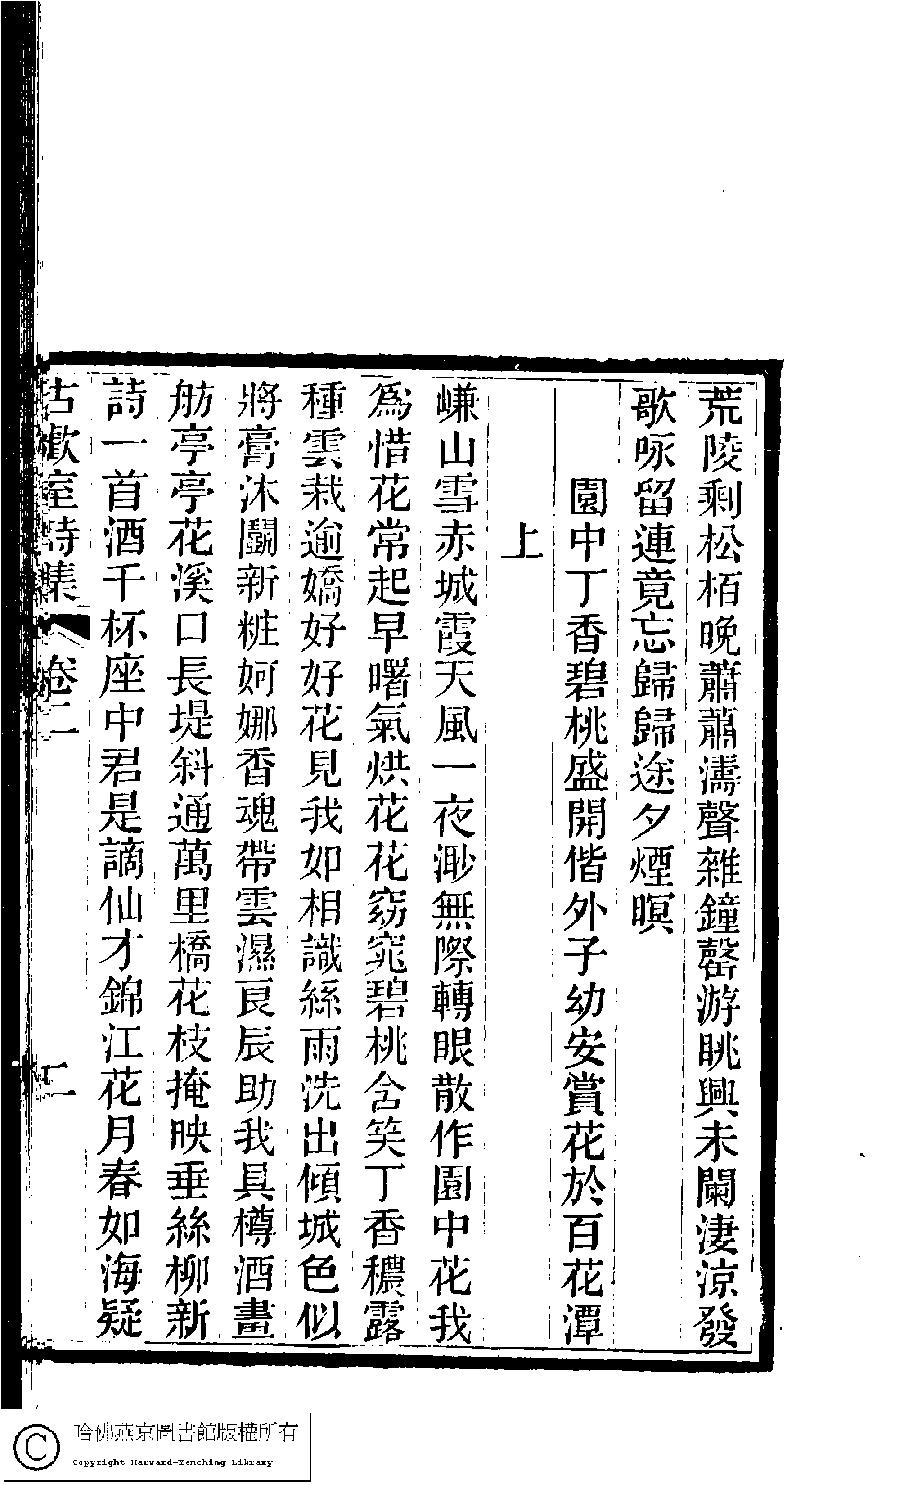 荒陵剩松栢晚蕭蕭濤聲雜鐘罄游眺興未闌淒涼發
歌咏留連竟忘歸歸途夕煙暝
園中丁香碧桃盛開偕外子幼安賞花於百花潭
上
嵰山雪赤城霞天風一夜渺無際轉眼散作園中花我
為惜花常起早曙氣烘花花窈窕碧桃含笑丁香穠露
種雲栽逾嬌好好花見我如相識絲雨洗出傾城色似
將膏沐鬭新粧婀娜香魂帶雲濕良辰助我具樽酒畫
舫亭亭花溪口長堤斜通萬里橋花枝掩映垂絲柳新
詩一首酒千杯座中君是謫仙才錦江花月春如海疑
古歡室詩集 卷二 二
哈佛燕京圖書館版權所有
Copyright Harvard-Yenching Library